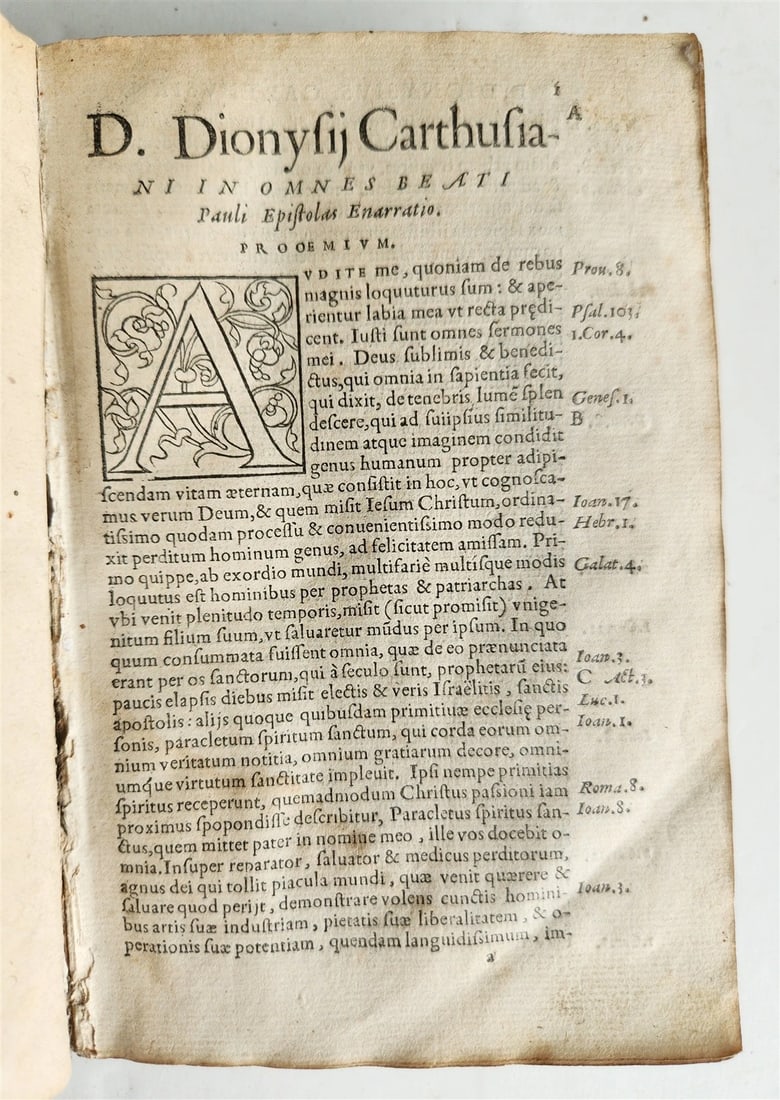 1
A
D. Dionyſij Carthuſia-
NI IN OMNES BEATI
Pauli Epiſtolas Enarratio.
PROOEMIVM.
AVDITE me, quoniam de rebus Prou.8.
magnis loquuturus ſum: & ape-
rientur labia mea vt recta prędi- Pſal.103.
cent. Iuſti ſunt omnes ſermones 1.Cor.4.
mei. Deus ſublimis & benedi-
ctus, qui omnia in ſapientia fecit,
qui dixit, de tenebris lumē ſplen Geneſ.1.
deſcere, qui ad ſuiipſius ſimilitu- B
dinem atque imaginem condidit
genus humanum propter adipi-
ſcendam vitam æternam, quæ conſiſtit in hoc, vt cognoſca-
mus verum Deum, & quem miſit Ieſum Chriſtum, ordina- Ioan.17.
tiſſimo quodam proceſſu & conuenientiſſimo modo redu- Hebr.1.
xit perditum hominum genus, ad felicitatem amiſſam. Pri-
mo quippe, ab exordio mundi, multifariè multiſque modis Galat.4.
loquutus eſt hominibus per prophetas & patriarchas. At
vbi venit plenitudo temporis, miſit (ſicut promiſit) vnige-
nitum filium ſuum, vt ſaluaretur mūdus per ipſum. In quo
quum conſummata fuiſſent omnia, quæ de eo prænunciata Ioan.3.
erant per os ſanctorum, qui à ſeculo ſunt, prophetarū eius: C Act.3.
paucis elapſis diebus miſit electis & veris Iſraëlitis, ſanctis Luc.1.
apoſtolis: alijs quoque quibuſdam primitiuæ eccleſię per- Ioan.1.
ſonis, paracletum ſpiritum ſanctum, qui corda eorum om-
nium veritatum notitia, omnium gratiarum decore, omni-
umque virtutum ſanctitate impleuit. Ipſi nempe primitias
ſpiritus receperunt, quemadmodum Chriſtus paſſioni iam Roma.8.
proximus ſpopondiſſe deſcribitur, Paracletus ſpiritus ſan- Ioan.8.
ctus, quem mittet pater in nomine meo, ille vos docebit o-
mnia. Inſuper reparator, ſaluator & medicus perditorum,
agnus dei qui tollit piacula mundi, quæ venit quærere &
ſaluare quod perijt, demonſtrare volens cunctis homini- Ioan.3.
bus artis ſuæ induſtriam, pietatis ſuæ liberalitatem, & o-
perationis ſuæ potentiam, quendam languidiſſimum, im-
a